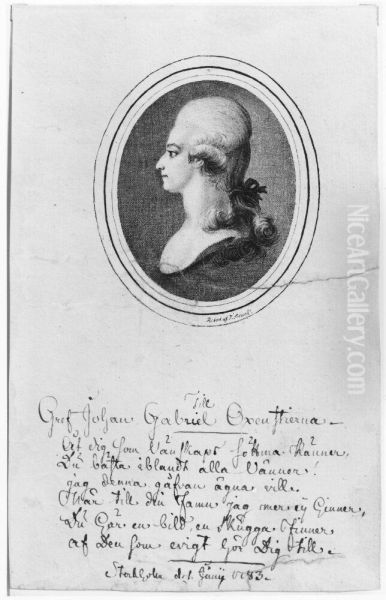 Till
Gref Johan Gabriel Oxenstierna
At dig, som Vänskaps sötma känner,
Du bästa iblandt alla Vänner!
jag denna gåfvan ägna vill.
När till din famn jag mer ej hinner,
Du här en bild en skugga finner
af Den som evigt hör Dig till.
Stockholm d. 1 Junij 1783.
NiceArtGallery.com